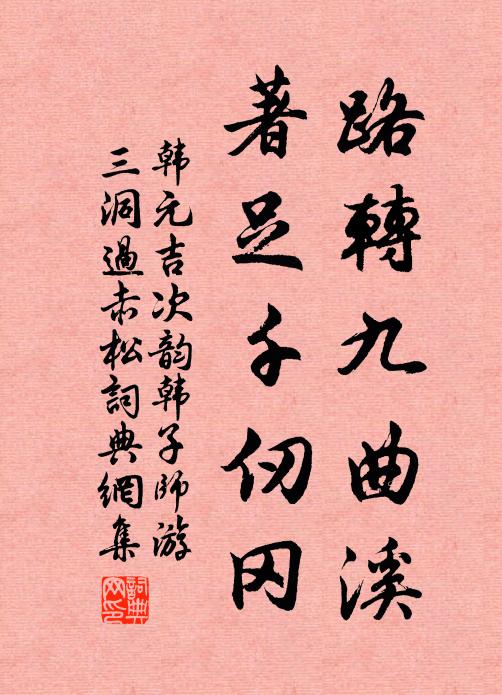 路轉九曲溪
著足千仞冈
韩元吉次韵韩子师游
三洞過赤松詞典網集
詞典
网印